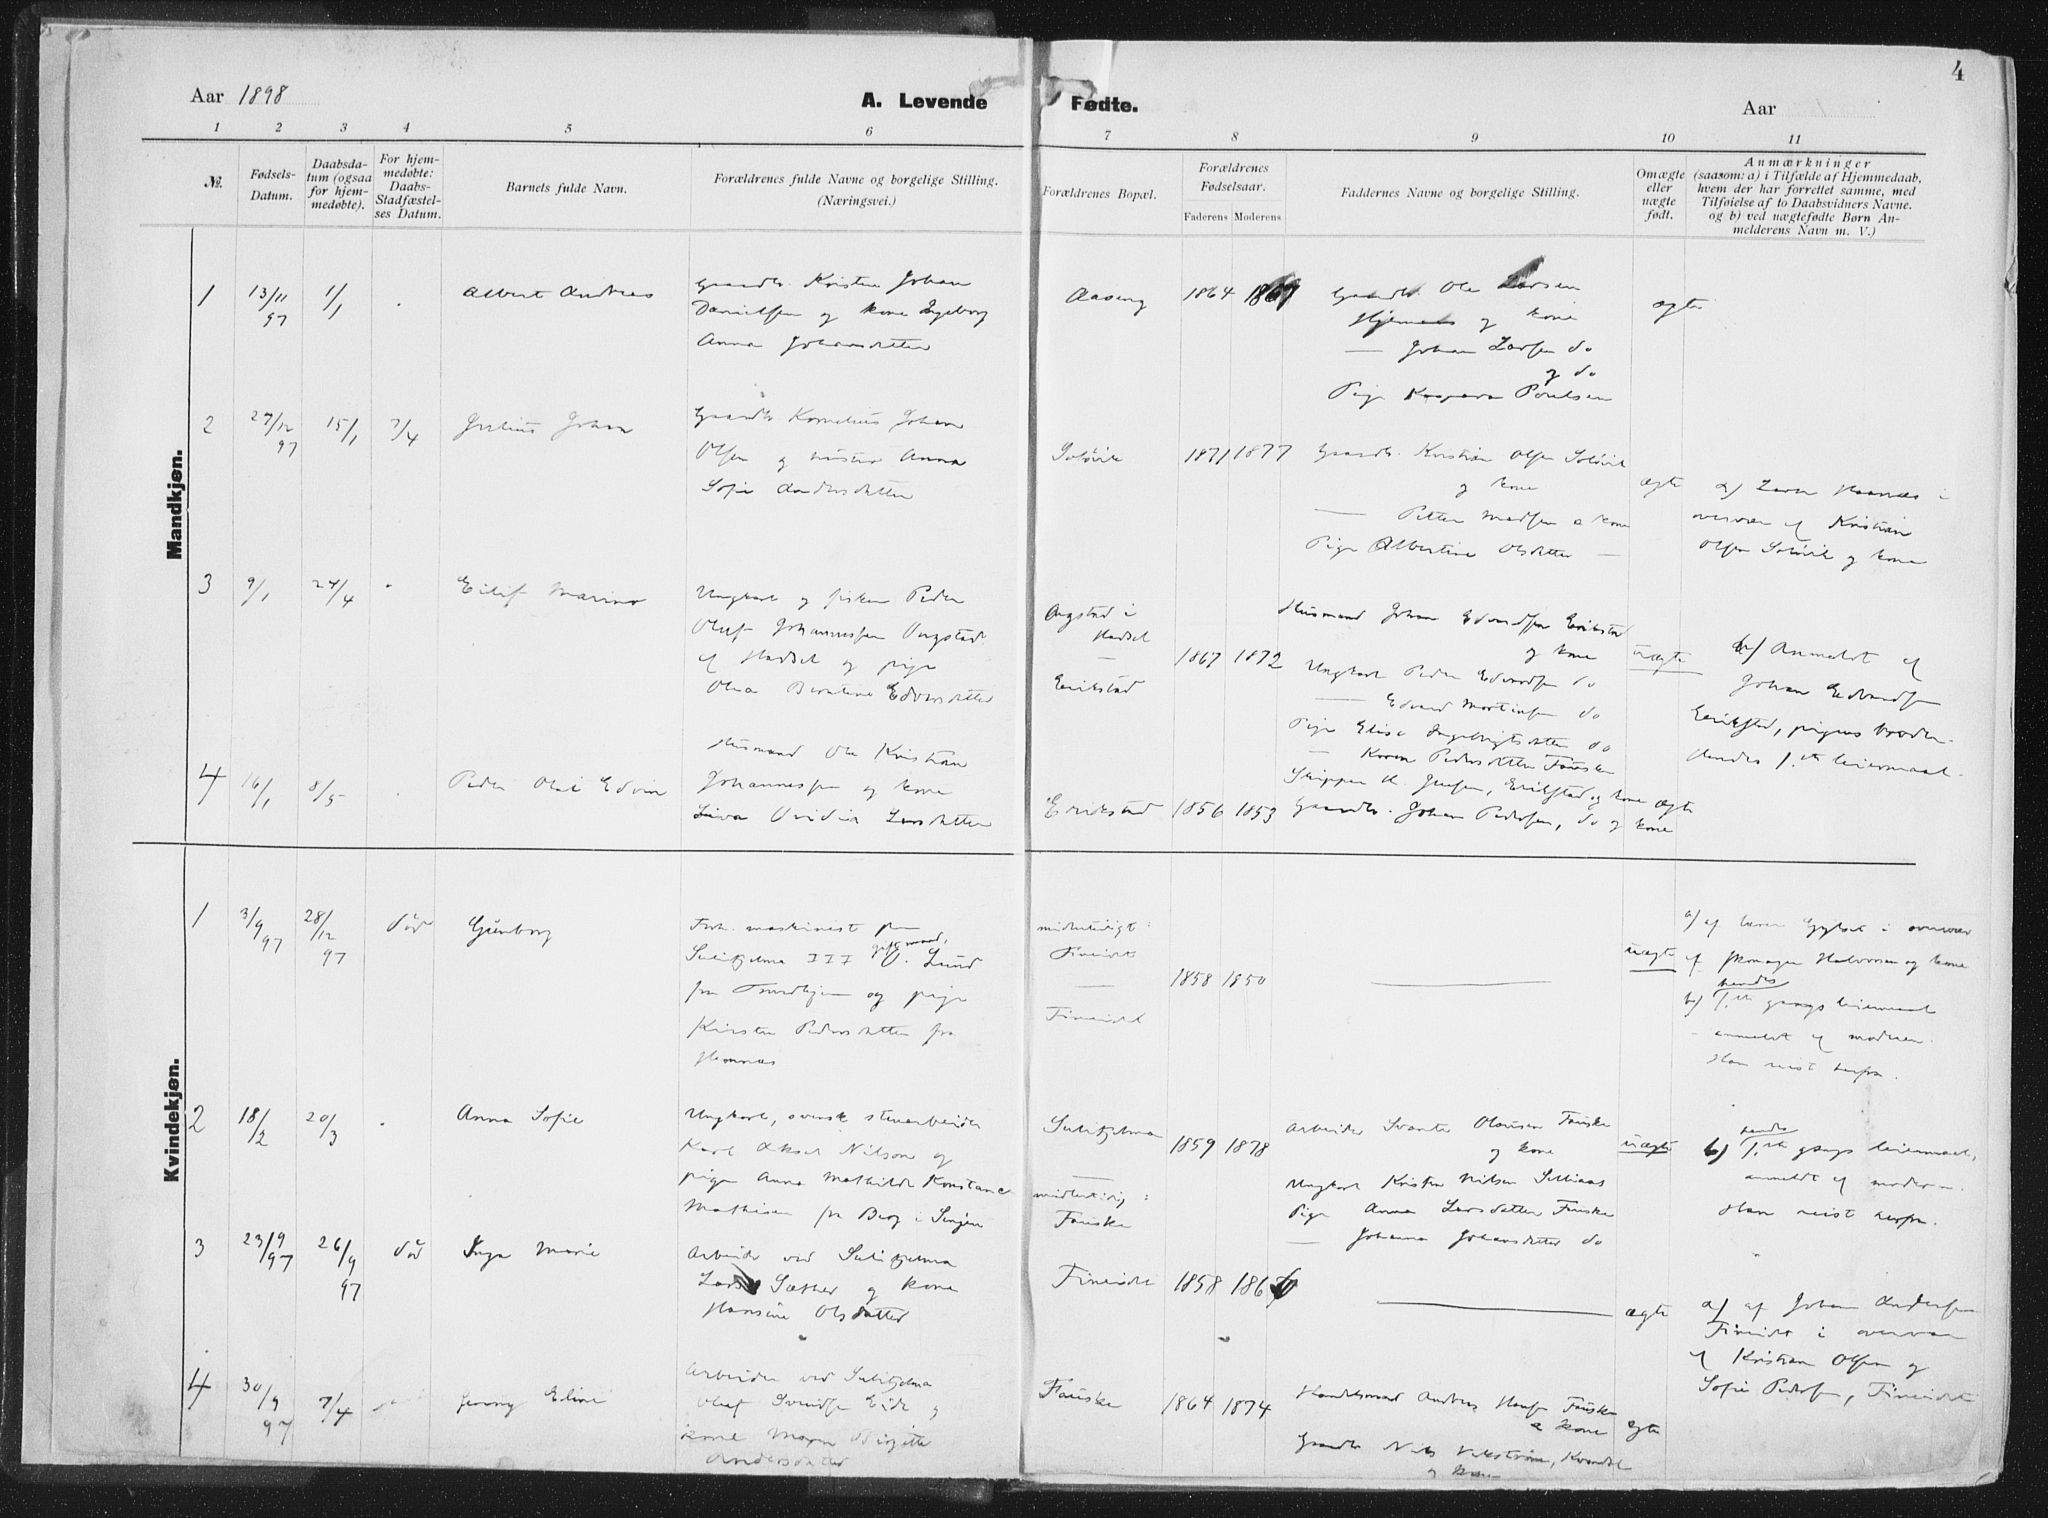 4
Aar 1898
A. Levende Fødte.
Aar
1 2 3 4 5 6 7 8 9 10 11
№.
Fødsels-
Datum.
Daabsda-
tum (ogsaa
for hjem-
medøbte).
For hjem-
medøbte:
Daabs-
Stadfæstel-
ses Datum.
Barnets fulde Navn.
Forældrenes fulde Navne og borgelige Stilling.
(Næringsvei.)
Forældrenes Bopæl.
Forældrenes
Fødselsaar.
Faderens Moderens
Faddernes Navne og borgelige Stilling.
Omægte
eller
uægte
født.
Anmærkninger
(saasom: a) i Tilfælde af Hjemmedaab,
hvem der har forrettet samme, med
Tilføielse af to Daabsvidners Navne.
og b) ved uægtefødte Børn An-
melderens Navn m. V.)
Mandkjøn.
1 13/11 97 1/1 Albert Andreas
Gaardbr. Kristen Johan
Danielsen og kone Ingeborg
Anna Johansdatter
Aaseng 1864
Gaardbr. Ole Larsen
og kone
— Johan Larsen do
og do
Pige Kaspara Poulsen
ægte
2 27/12 97 15/1 7/4 Julius Johan
Gaardb. Kornelius Johan
Olsen og hustru Anna
Sofie Andersdatter
Soløvik 1871 1877
Gaardbr. Kristian Olsen Soløvik
og kone
— Petter Madsen & kone
Pige Albertine Olsdatter —
ægte
a) Lærer i
overvær af Kristian
Olsen Soløvik og kone
3 9/1 24/4 Eilif Marino
Ungkarl og fisker Peder
Oluf Johannessen Angstad
af Hadsel og pige
Olea Berntine Edvardsdatter
Angstad i
Hadsel
—
Erikstad
1867 1872
Husmand Johan Edvardsen Erikstad
og kone
Ungkarl Peder Edvardsen do
— Edvard Martinsen do
Pige Elise Ingebrigtsdatter do
— Karen Pedersdatter Fauske
uægte
b) Anmeldt af
Johan Edvardsen
Erikstad, pigens broder.
Hendes 1.ste leiermaal.
4 16/1 8/5 Peder Olai Edvin
Husmand Ole Kristian
Johannessen og kone
Larsdatter
Erikstad 1856 1853
Skipper H. Jensen, Erikstad og kone
Gaardbr. Johan Pedersen, do og kone
ægte
Kvindekjøn.
1 3/9 97 28/12 97 død Gunborg
Forh. maskinist paa
Sulitjelma III gift mand, J. Lund
fra Trondhjem og pige
Kirsten Pedersdatter fra
Hemnæs
midlertidigt:
Fineidet
—
Fineidet
1858 1850
uægte
a) af lærer i overvær
af Halvorsen og kone
b) hendes 1.ste gangs leiermaal
– anmeldt af moderen.
Han reist herfra.
2 18/2 20/3 Anna Sofie
Ungkarl, svensk stenarbeider
Karl Aksel Nilson og
pige Anna Mathilde Konstance
Mathisen fra Berg i Senjen
Sulitjelma
—
midlertidig:
Fauske
1859 1878
Arbeider Svante Olausen Fauske
og kone
Ungkarl Kristen Nilsen
Pige Anna Larsdatter Fauske
— Johanna Johansdatter do
uægte
b) hendes 1.ste gangs leiermaal,
anmeldt af moderen.
Han reist herfra.
3 23/9 97 26/9 97 død Inga Marie
Arbeider ved Sulitjelma
Lars Sæther og kone
Hansine Olsdatter
Fineidet 1858
ægte
a) af Johan Andersen
Fineidet i overvær
af Kristian Olsen og
Sofie Pedersen, Fineidet
4 30/9 97 7/4 Jenny Eline
Arbeider ved Sulitjelma
Oluf Eide og
kone Birgitte
Andersdatter
Fauske 1864 1874
Handelsmand Andreas Hansen Fauske
& kone
Gaardbr Nils
og kone
ægte